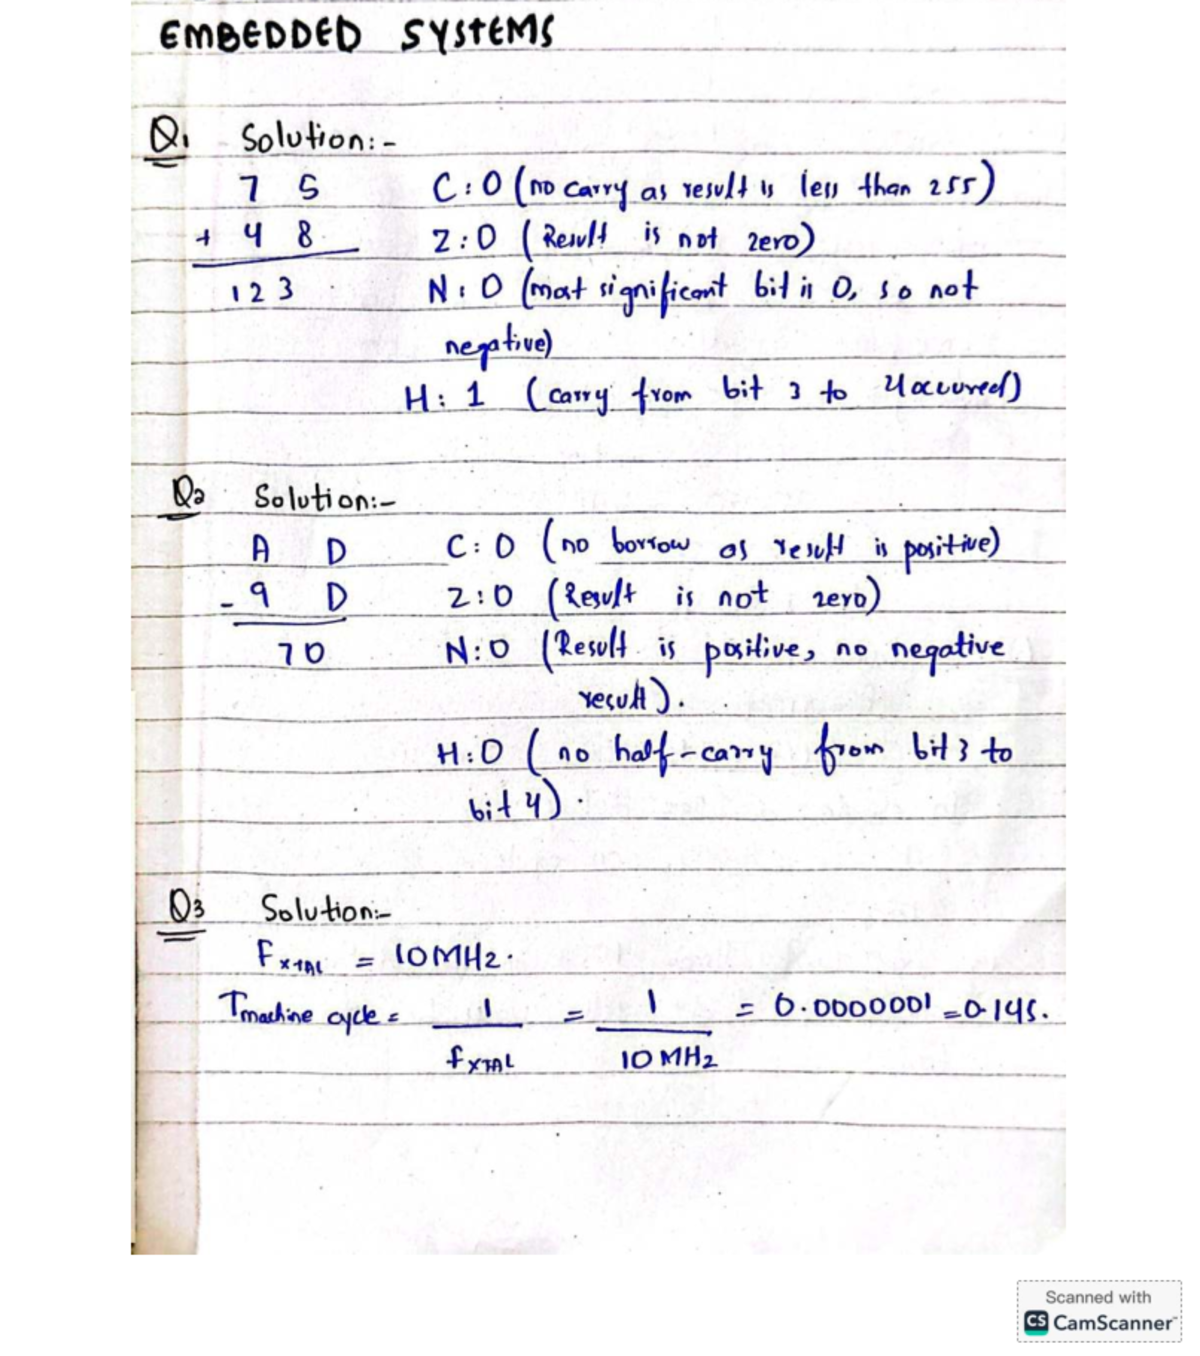 EMBEDDED SYSTEMS
Q1 Solution:-
7 5 C:0 (no carry as result is less than 255)
+ 4 8 Z:0 (Result is not zero)
123 N:0 (most significant bit is 0, so not
negative)
H: 1 (carry from bit 3 to 4 occured)
Q2 Solution:-
A D C:0 (no borrow as result is positive)
- 9 D Z:0 (Result is not zero)
70 N:0 (Result is positive, no negative
result).
H:0 (no half-carry from bit 3 to
bit 4).
Q3 Solution:-
FXTAL = 10MHz.
Tmachine cycle = 1 = 1 = 0.0000001 =0.14s.
fXTAL 10 MHz
Scanned with
CS CamScanner